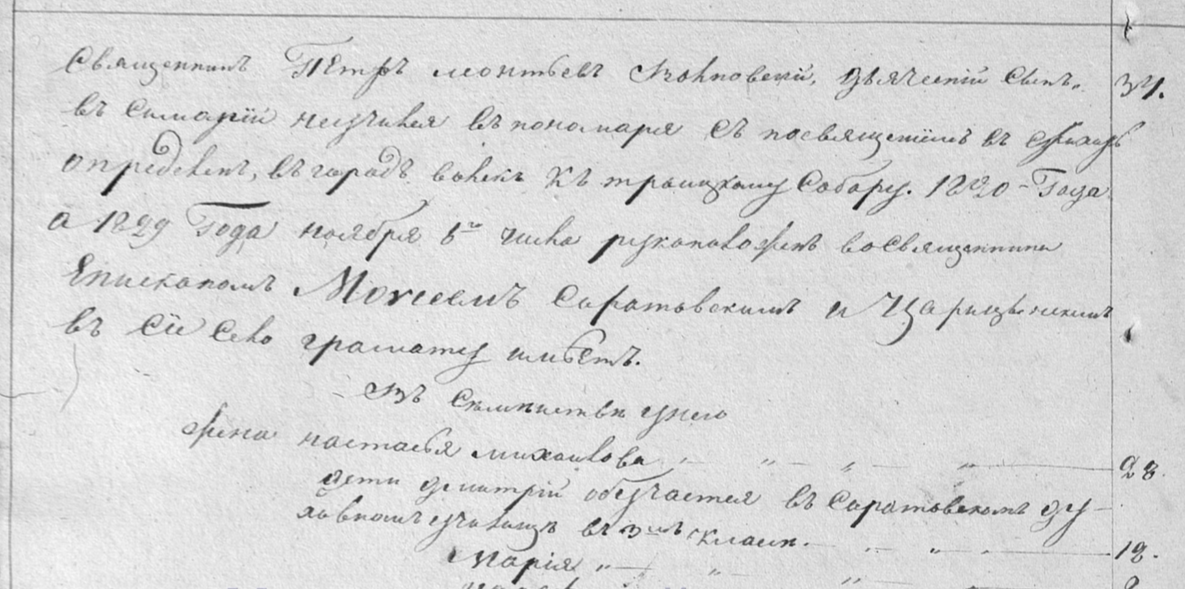 Священникъ Петръ Леонтьевъ дьяческій сынъ. 34.
въ семинаріи не учился въ пономаря съ посвященіемъ въ стихарь
опредѣленъ, въ городъ къ троицкому Собору. 1820 – Года
а 1829 Года ноября числа рукоположенъ во священника
Епископомъ Моисеемъ Саратовскимъ и Царицынскимъ
въ Сіе Село грамату имѣетъ.
Въ Семействѣ у него
жена настасья михаилова 28.
дети димитрій обучается въ Саратовскомъ ду-
ховномъ училищѣ въ 3мъ классѣ. 12.
Марія